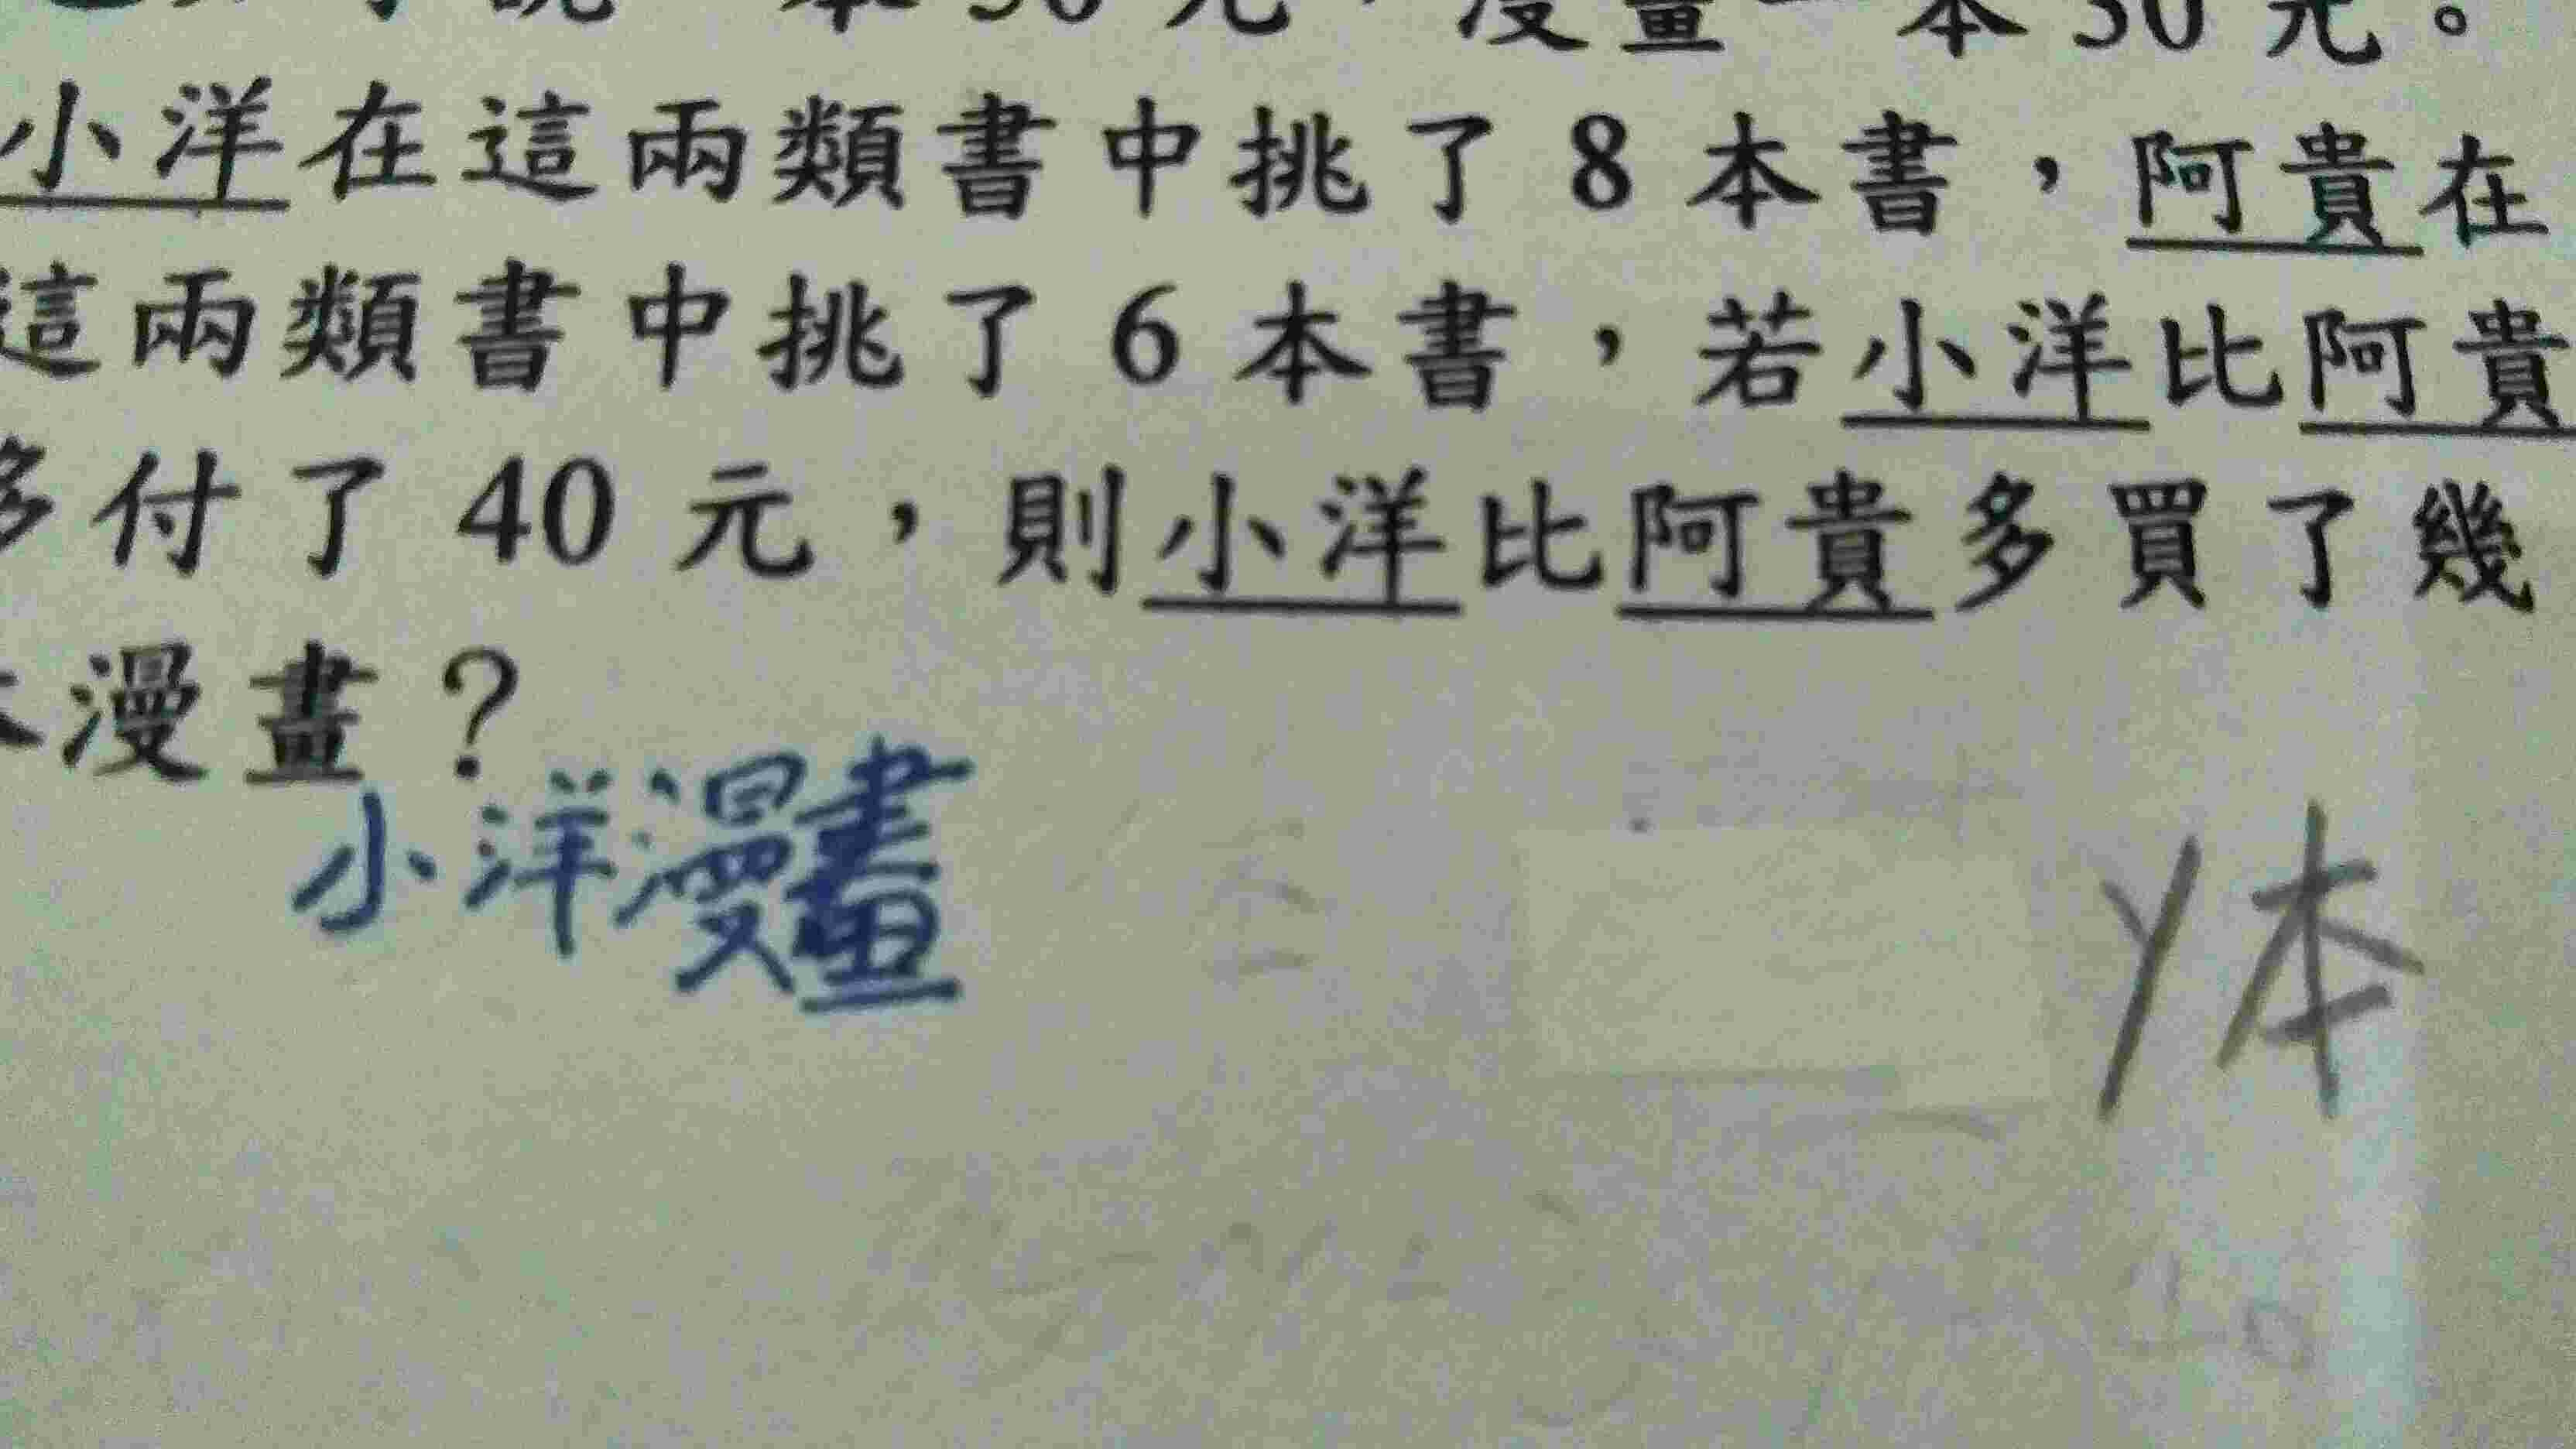 說一本50元，漫畫一本30元。
小洋在這兩類書中挑了8本書，阿貴在
這兩類書中挑了6本書，若小洋比阿貴
多付了40元，則小洋比阿貴多買了幾
本漫畫？
小洋漫畫
y本